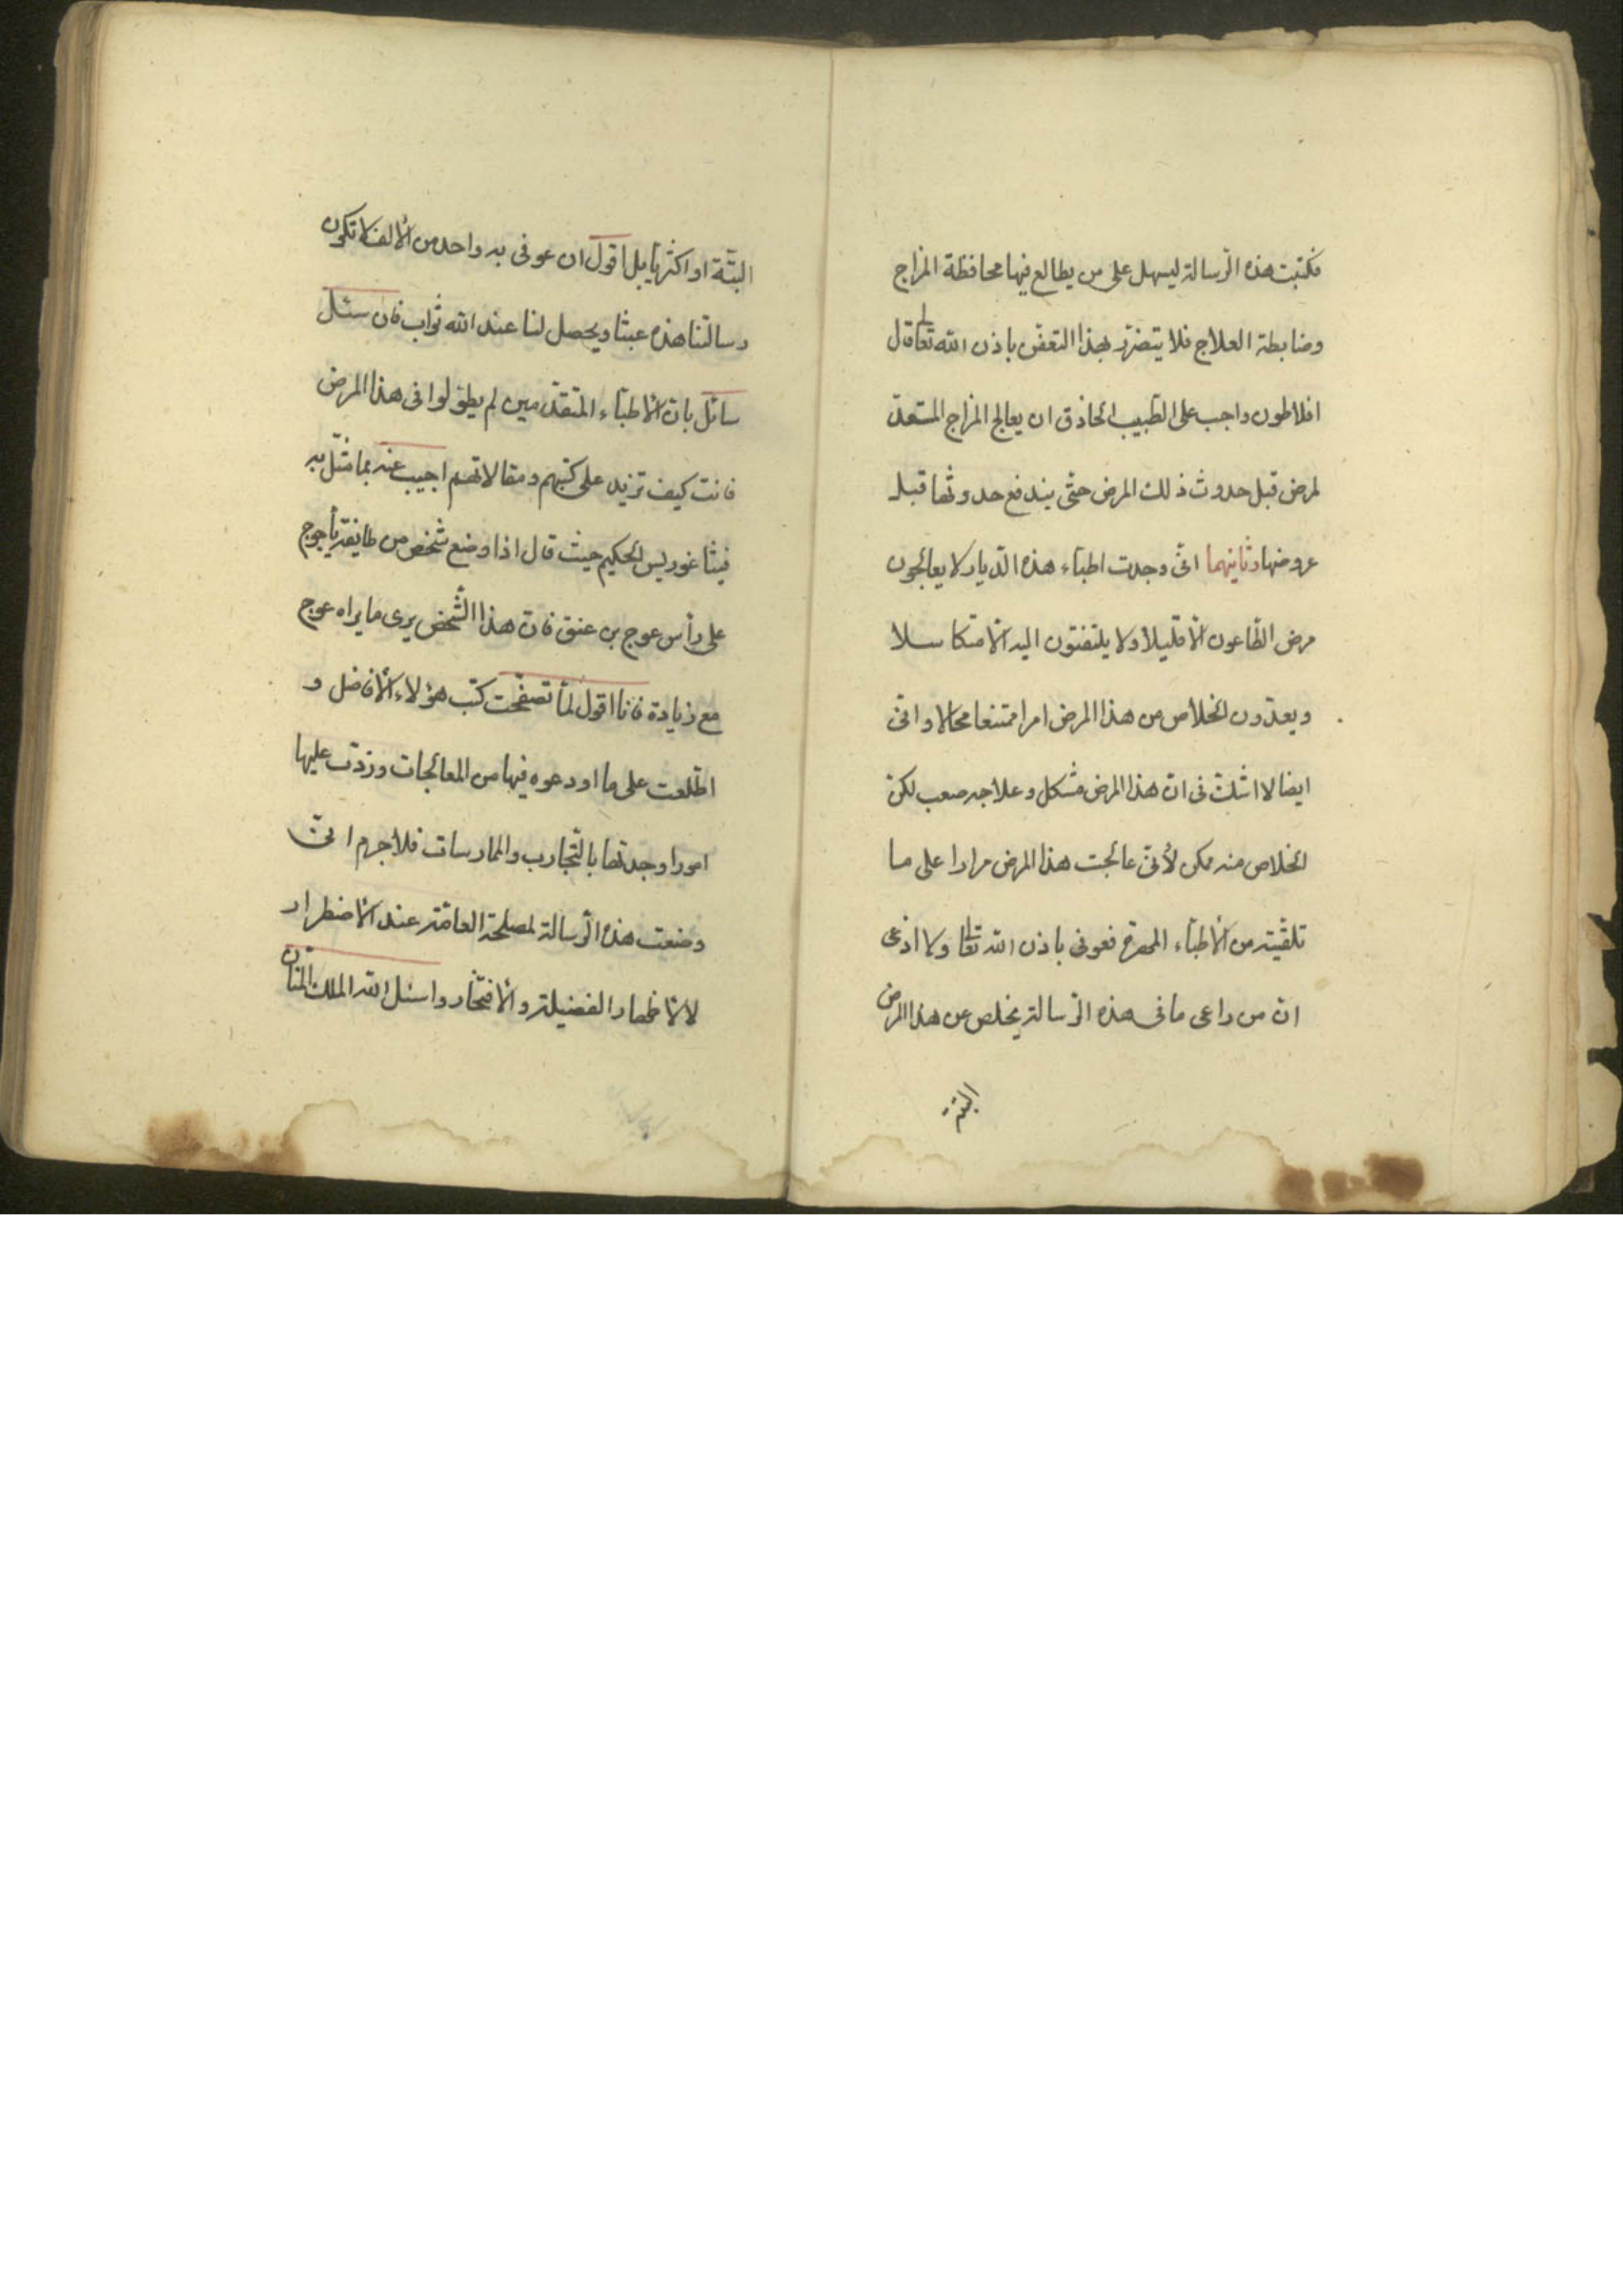 فكتبت هذه الرّسالة ليسهل على من يطالع فيها محافظة المزاج
وضابطة العلاج فلا يتضرّر بهذا التعفّن باذن الله تعالى قال
افلاطون واجب على الطّبيب الحاذق ان يعالج المزاج المستعدّ
لمرض قبل حدوث ذلك المرض حتّى يندفع حدوثها قبل
عروضها وثانيهما انّى وجدت اطبّاء هذه الدّيار لا يعالجون
مرض الطّاعون الّا قليلا ولا يلتفتون اليه الّا متكاسلا
ويعدّون الخلاص من هذا المرض امرا ممتنعا محالا وانّى
ايضا لا اشكّ فى انّ هذا المرض مشكل وعلاجه صعب لكنّ
الخلاص منه ممكن لأنّى عالجت هذا المرض مرارا على ما
تلقّيته من الأطبّاء المهرة فعوفى باذن الله تعالى ولا ادّعى
انّ من راعى ما فى هذه الرّسالة يخلص من هذا المرض
البتّة
البتّة او اكثريّا بل اقول ان عوفى به واحد من الألف لا تكون
رسالتنا هذه عبثا ويحصل لنا عند الله ثواب فان سئل
سائل بانّ الأطبّاء المتقدّمين لم يطوّلوا فى هذا المرض
فانت كيف تزيد على كتبهم ومقالاتهم اجيب عنه بما مثّل به
فيثاغوريس الحكيم حيث قال اذا وضع شخص من طايفة يأجوج
على رأس عوج بن عنق فانّ هذا الشّخص يرى ما يراه عوج
مع زيادة فانا اقول لمّا تصفّحت كتب هؤلاء الأفاضل و
اطّلعت على ما اودعوه فيها من المعالجات وزدت عليها
امورا وجدتها بالتّجارب والممارسات فلا جرم انّى
وضعت هذه الرّسالة لمصلحة العامّة عند الأضطرار
لا لأظهار الفضيلة والأفتخار واسئل الله الملك المنّان